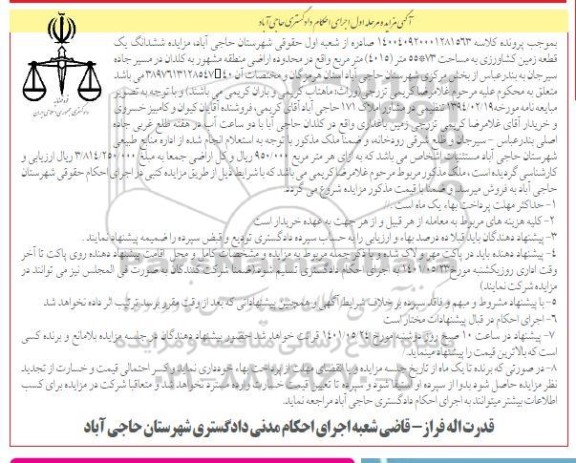 آگهی مزایده مرحله اول اجرای احکام دادگستری حاجی آباد
بموجب پرونده کلاسه ۱۴۰۰۴۰۹۲۰۰۰۱۲۸۱۵۶۳ صادره از شعبه اول حقوقی شهرستان حاجی آباد، مزایده ششدانگ یک
قطعه زمین کشاورزی به مساحت ۵۵۵۷۳ متر (۴۰۱۵) متر مربع واقع در محدوده اراضی منطقه مشهور به کلدان در مسیر جاده
سیرجان به بندرعباس از بخش مرکزی شهرستان حاجی آباد استان هرمزگان و مختصات آن می باشد
متعلق به محکوم علیه مرحوم غلامرضا کریمی تزرجی (وراث: ماهتاب کریمی و باران کریمی می باشند) و با توجه به تصویر
مبایعه نامه مورخه ۱۳۹۴/۰۲/۱۹ تنظیمی در مشاور املاک ۱۷۱ حاجی آباد آقای کریمی، فروشنده آقایان کیوان و کامبیز خسروی
و خریدار آقای غلامرضا کریمی تزرجی زمین باغداری واقع در کلدان حاجی آباد با دو ساعت آب در هفته ضلع غربی جاده
اصلی بندرعباس - سیرجان و ضلع شرقی رودخانه، و ضمنا ملک مذکور با توجه به استعلام انجام شده از اداره منابع طبیعی
شهرستان حاجی آباد مستثنیات اشخاص می باشد که به ازای هر متر مربع ۹۵۰/۰۰۰ ریال و کل اراضی جمعا به مبلغ ۳/۸۱۴/۲۵۰/۰۰۰ ریال ارزیابی و
کارشناسی گردیده است، ملک مذکور مربوط مرحوم غلامرضا کریمی می باشد که با شرایط ذیل از طریق مزایده کتبی در اجرای احکام حقوقی شهرستان
حاجی آباد به فروش میرسد و ضمنا با قیمت مذکور مزایده شروع می گردد
۱- حداکثر مهلت پرداخت بهاء یک ماه است.
۲- کلیه هزینه های مربوط به معامله از هر قبیل و از هر جهت به عهده خریدار است
۳- پیشنهاد دهندگان باید قبلا ده درصد بهاء و ارزیابی را به حساب سپرده دادگستری تودیع و قبض سپرده را ضمیمه پیشنهاد نمایند.
۴- پیشنهاد دهنده باید در پاکت مهر و لاک شده و با ذکر جمله مربوط به مزایده و مشخصات کامل و محل اقامت پیشنهاد دهنده روی پاکت تا آخر
وقت اداری روز یکشنبه مورخ ۱۴۰۱/۰۵/۲۳ به اجرای احکام دادگستری تسلیم شود (ضمنا شرکت کنندگان به صورت فی المجلس نیز می توانند در
مزایده شرکت نمایند)
۵- با پیشنهاد مشروط و مبهم و فاقد سپرده بر خلاف شرایط آگهی و همچنین پیشنهاداتی که بعد از وقت مقرر برسد ترتیب اثر داده نخواهد شد
۶- اجرای احکام در قبال پیشنهادات مختار است
۷- پیشنهاد در ساعت ۱۰ صبح روز دوشنبه مورخ ۱۴۰۱/۰۵/۲۴ قرائت خواهد شد حضور پیشنهاد دهندگان در جلسه مزایده بلامانع و برنده کسی
است که بالاترین قیمت را پیشنهاد مینماید.
۸- در صورتی که برنده تا یک ماه از تاریخ جلسه مزایده و با انقضای مهلت از پرداخت بهاء خودداری نماید و کسر احتمالی قیمت و خسارت از تجدید
نظر مزایده حاصل شود بدوا از سپرده او استیفا شود و سپرده تا تعیین قیمت و خسارت وارده مسترد نخواهد شد و متعاقبا شرکت در مزایده برای کسب
اطلاعات بیشتر میتوانند به اجرای احکام دادگستری حاجی آباد مراجعه نماید.
قدرت اله فراز - قاضی شعبه اجرای احکام مدنی دادگستری شهرستان حاجی آباد